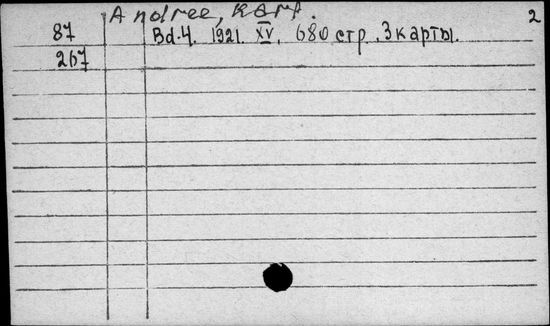 Andree, Karl.
2
87 Bd. 4. 1921. XV, 680 стр., 3 карты.
267